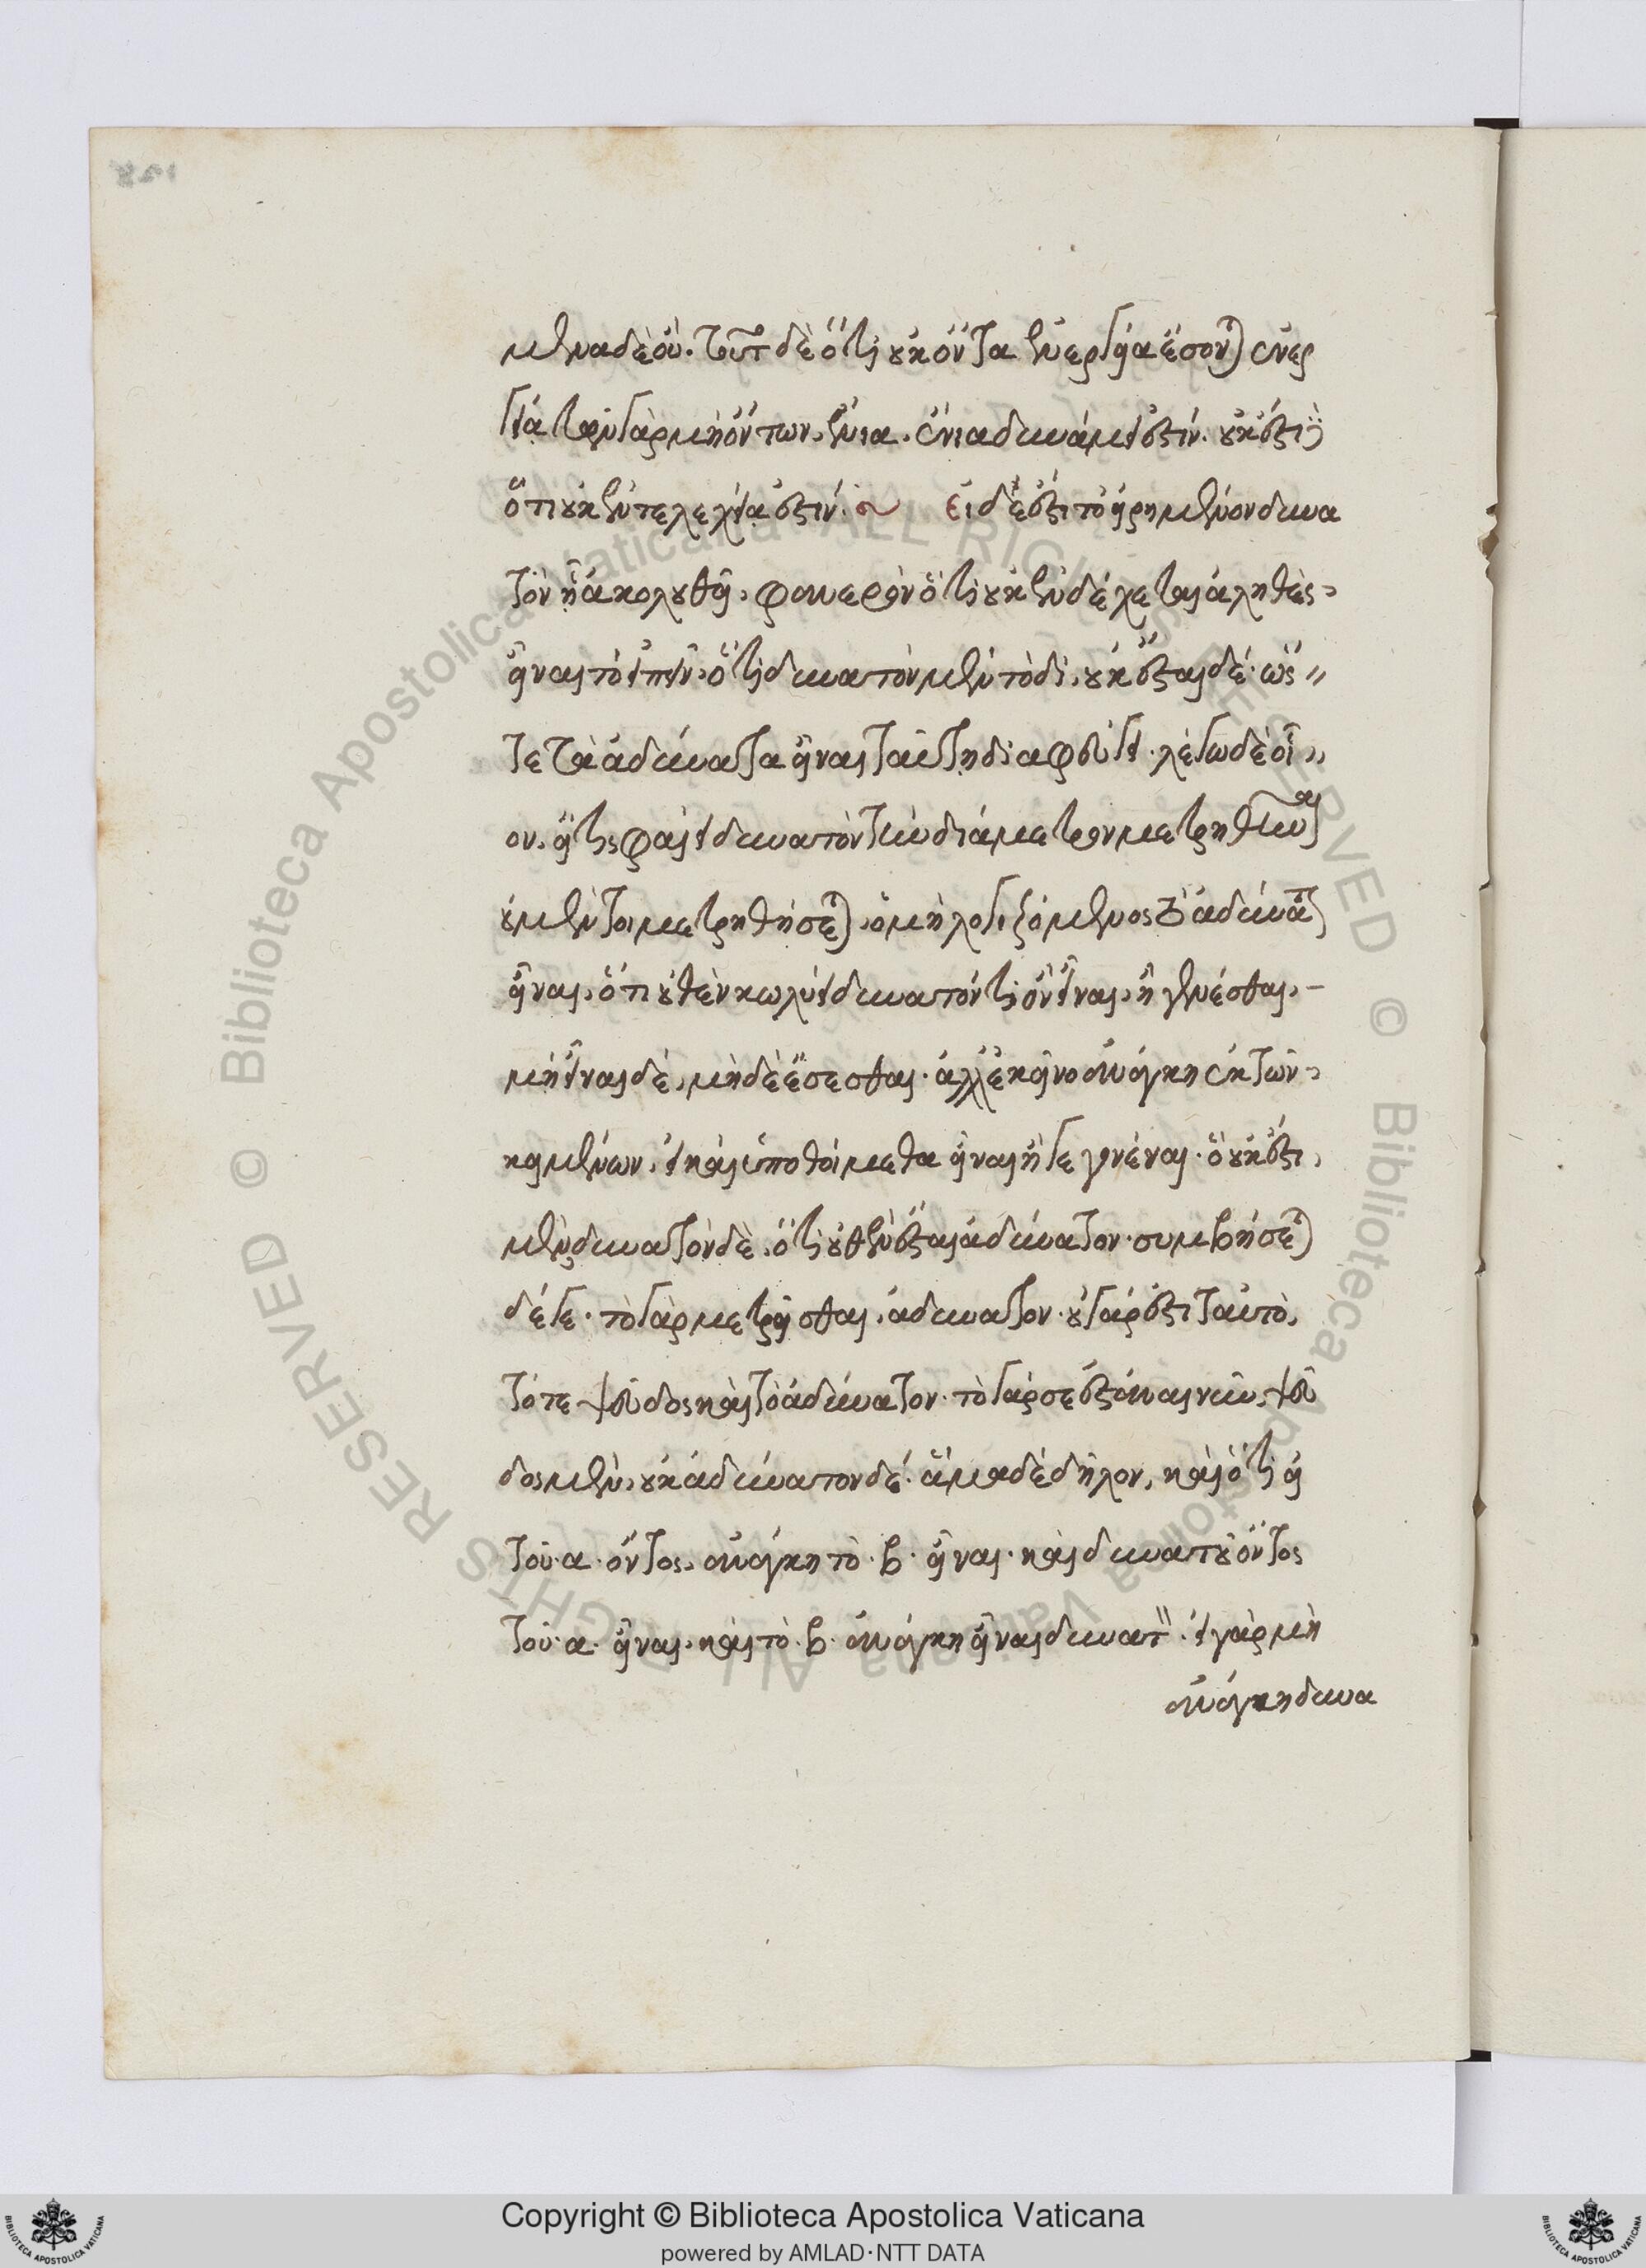 μενα δὲ οὔ. τοῦτο δὲ ὅτι οὐκ ὄντα ἐνεργείᾳ ἔσονται ἐνερ
γείᾳ τῶν γὰρ μὴ ὄντων, ἔνια. ἔνια δυνάμει ἐστίν. οὐκ ἔστι δὲ
ὅτι οὐκ ἐντελεχείᾳ ἐστίν. εἰ δέ ἐστι τὸ εἰρημένον δυνα
τὸν ἢ ἀκολουθεῖ, φανερὸν ὅτι οὐκ ἐνδέχεται ἀληθὲς
εἶναι τὸ εἰπεῖν, ὅτι δυνατὸν μὲν τοδί, οὐκ ἔσται δέ. ὥς
τε τὰ ἀδύνατα εἶναι ταύτῃ διαφεύγει. λέγω δὲ οἷ
ον, εἴ τις φαίη δυνατὸν τὴν διάμετρον μετρηθῆναι
οὐ μέντοι μετρηθήσεται, ὁ μὴ λογιζόμενος τὸ ἀδύνατον
εἶναι, ὅτι οὐθὲν κωλύει δυνατόν τι ὂν εἶναι, ἢ γενέσθαι,
μὴ εἶναι δὲ, μὴ δὲ ἔσεσθαι. ἀλλ' ἐκεῖνο ἀνάγκη ἐκ τῶν
κειμένων, εἰ καὶ ὑποθοίμεθα εἶναι ἢ γεγονέναι. ὃ οὐκ ἔστι
μὲν δυνατὸν δὲ, ὅτι οὐθὲν ἔσται ἀδύνατον. συμβήσεται
δέ γε. τὸ γὰρ μετρεῖσθαι, ἀδύνατον. οὐ γάρ ἐστι ταὐτὸ,
τό τε ψεῦδος καὶ τὸ ἀδύνατον. τὸ γάρ σε ἑστάναι νῦν, ψεῦ
δος μὲν, οὐκ ἀδύνατον δέ. ἅμα δὲ δῆλον, καὶ ὅτι εἰ
τοῦ α ὄντος, ἀνάγκη τὸ β εἶναι. καὶ δυνατοῦ ὄντος
τοῦ α εἶναι, καὶ τὸ β ἀνάγκη εἶναι δυνατόν. εἰ γὰρ μὴ
ἀνάγκη δυνα
Copyright © Biblioteca Apostolica Vaticana
powered by AMLAD·NTT DATA